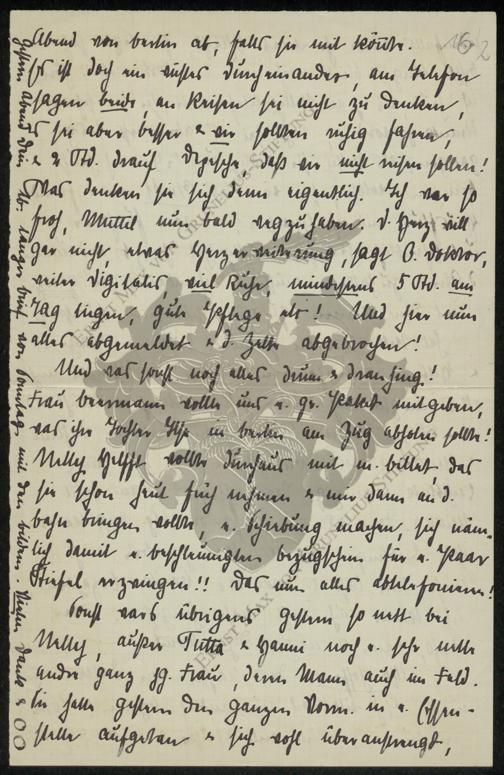 Abend von Berlin ab, falls sie mit könnte.
Es ist doch ein süsses Durcheinander, am Telefon
sagen beide, an Reisen sei nicht zu denken,
es sei aber besser & wir sollten ruhig fahren,
& 2 Std. drauf Depesche, daß wir nicht reisen sollen!
Was denken sie sich denn eigentlich. Ich war so
froh, Muttil nun bald wegzuhaben. D. Herz will
gar nicht, etwas Herzerweiterung, sagt B. Doktor,
weiter Digitalis, viel Ruhe, mindestens 5 Std. am
Tag liegen, gute Pflege etc! Und hier nun
alles abgemeldet & d. Zelte abgebrochen!
Und was sonst noch alles drum & dran hing!
Frau Beermann wollte uns e. gr. Paket mitgeben,
was ihre Tochter Ilse in Berlin am Zug abholen sollte!
Nelly Helfft wollte durchaus mit m. Billet, das
sie schon heut früh nehmen & mir dann an d.
Bahn bringen wollte, e. Schiebung machen, sich näm-
lich damit e. beschleunigten Bezugschein für e. Paar
Stiefel erzwingen!! Das nun alles abtelefonieren!
Sonst wars übrigens gestern so nett bei
Nelly, außer Tutta & Hanni noch e. sehr nette
andre ganz jg. Frau, deren Mann auch im Feld.
Sie hatte gestern den ganzen Vorm. in e. Essen-
stelle aufgetan & sich wohl überanstrengt,
gestern Abend Dein lb. langer Brief von Sonntag mit den Bildern. Vielen Dank &
16 2